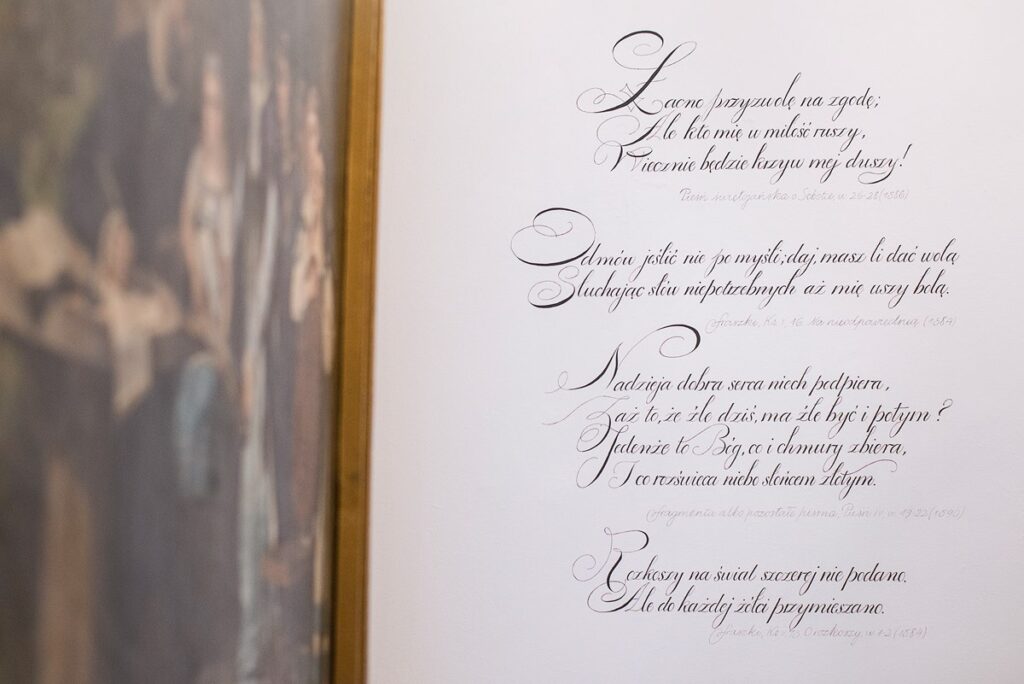 Łacno przyzwolę na zgodę;
Ale kto mię w miłość ruszy,
Wiecznie będzie krzyw mej duszy!
Pieśń świętojańska o Sobótce, w. 26-28 (1586)
Odmów jeślić nie po myśli; daj, masz li dać wolą
Słuchając słów niepotrzebnych aż mię uszy bolą.
Fraszki, Ks. I, 16. Na nieodpowiednią (1584)
Nadzieja dobra serca niech podpiera,
Zaż to, że źle dziś, ma źle być i potym?
Jedenże to Bóg, co i chmury zbiera,
I co rozświeca niebo słońcem złotym.
Fragmenta albo pozostałe pisma, Pieśń IV, w. 19-22 (1590)
Rozkoszy na świat szczerej nie podano.
Ale do każdej żółci przymieszano.
Fraszki, Ks. O rozkoszy, w. 1-2 (1584)